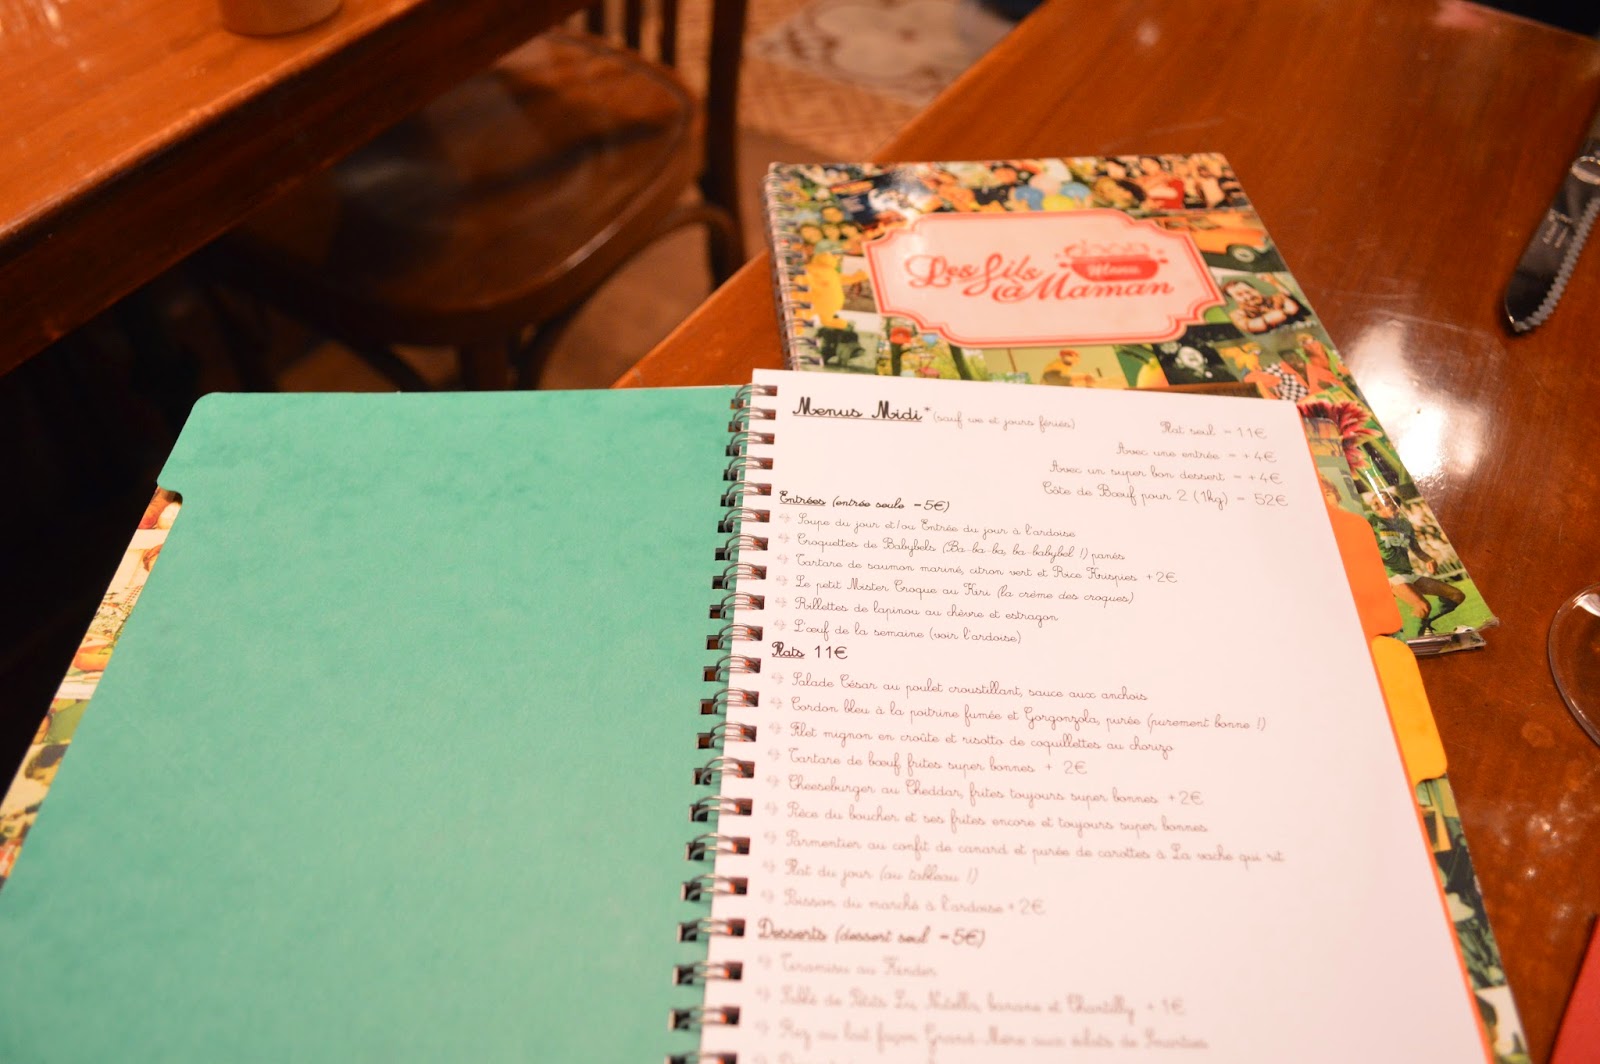 Les fils
à Maman
Menu
Menus Midi* (sauf we et jours fériés)
Plat seul = 11€
Avec une entrée = + 4€
Avec un super bon dessert = + 4€
Côte de Bœuf pour 2 (1kg) = 52€
Entrées (entrée seule = 5€)
Soupe du jour et/ou Entrée du jour à l'ardoise
Croquettes de Babybels (Ba-ba-ba, ba-babybel !) panés
Tartare de saumon mariné, citron vert et Rice Krispies + 2€
Le petit Mister Croque au Kiri (la crème des croques)
Rillettes de lapinou au chèvre et estragon
L'œuf de la semaine (voir l'ardoise)
Plats 11€
Salade César au poulet croustillant, sauce aux anchois
Cordon bleu à la poitrine fumée et Gorgonzola, purée (purement bonne !)
Filet mignon en croûte et risotto de coquillettes au chorizo
Tartare de bœuf, frites super bonnes + 2€
Cheeseburger au Cheddar, frites toujours super bonnes + 2€
Pièce du boucher et ses frites encore et toujours super bonnes
Parmentier au confit de canard et purée de carottes à La vache qui rit
Plat du jour (au tableau !)
Poisson du marché à l'ardoise + 2€
Desserts (dessert seul = 5€)
Tiramisu au Kinder
Sablé de Petits Lu, Nutella, banane et Chantilly + 1€
Riz au lait façon Grand-Mère aux éclats de Smarties